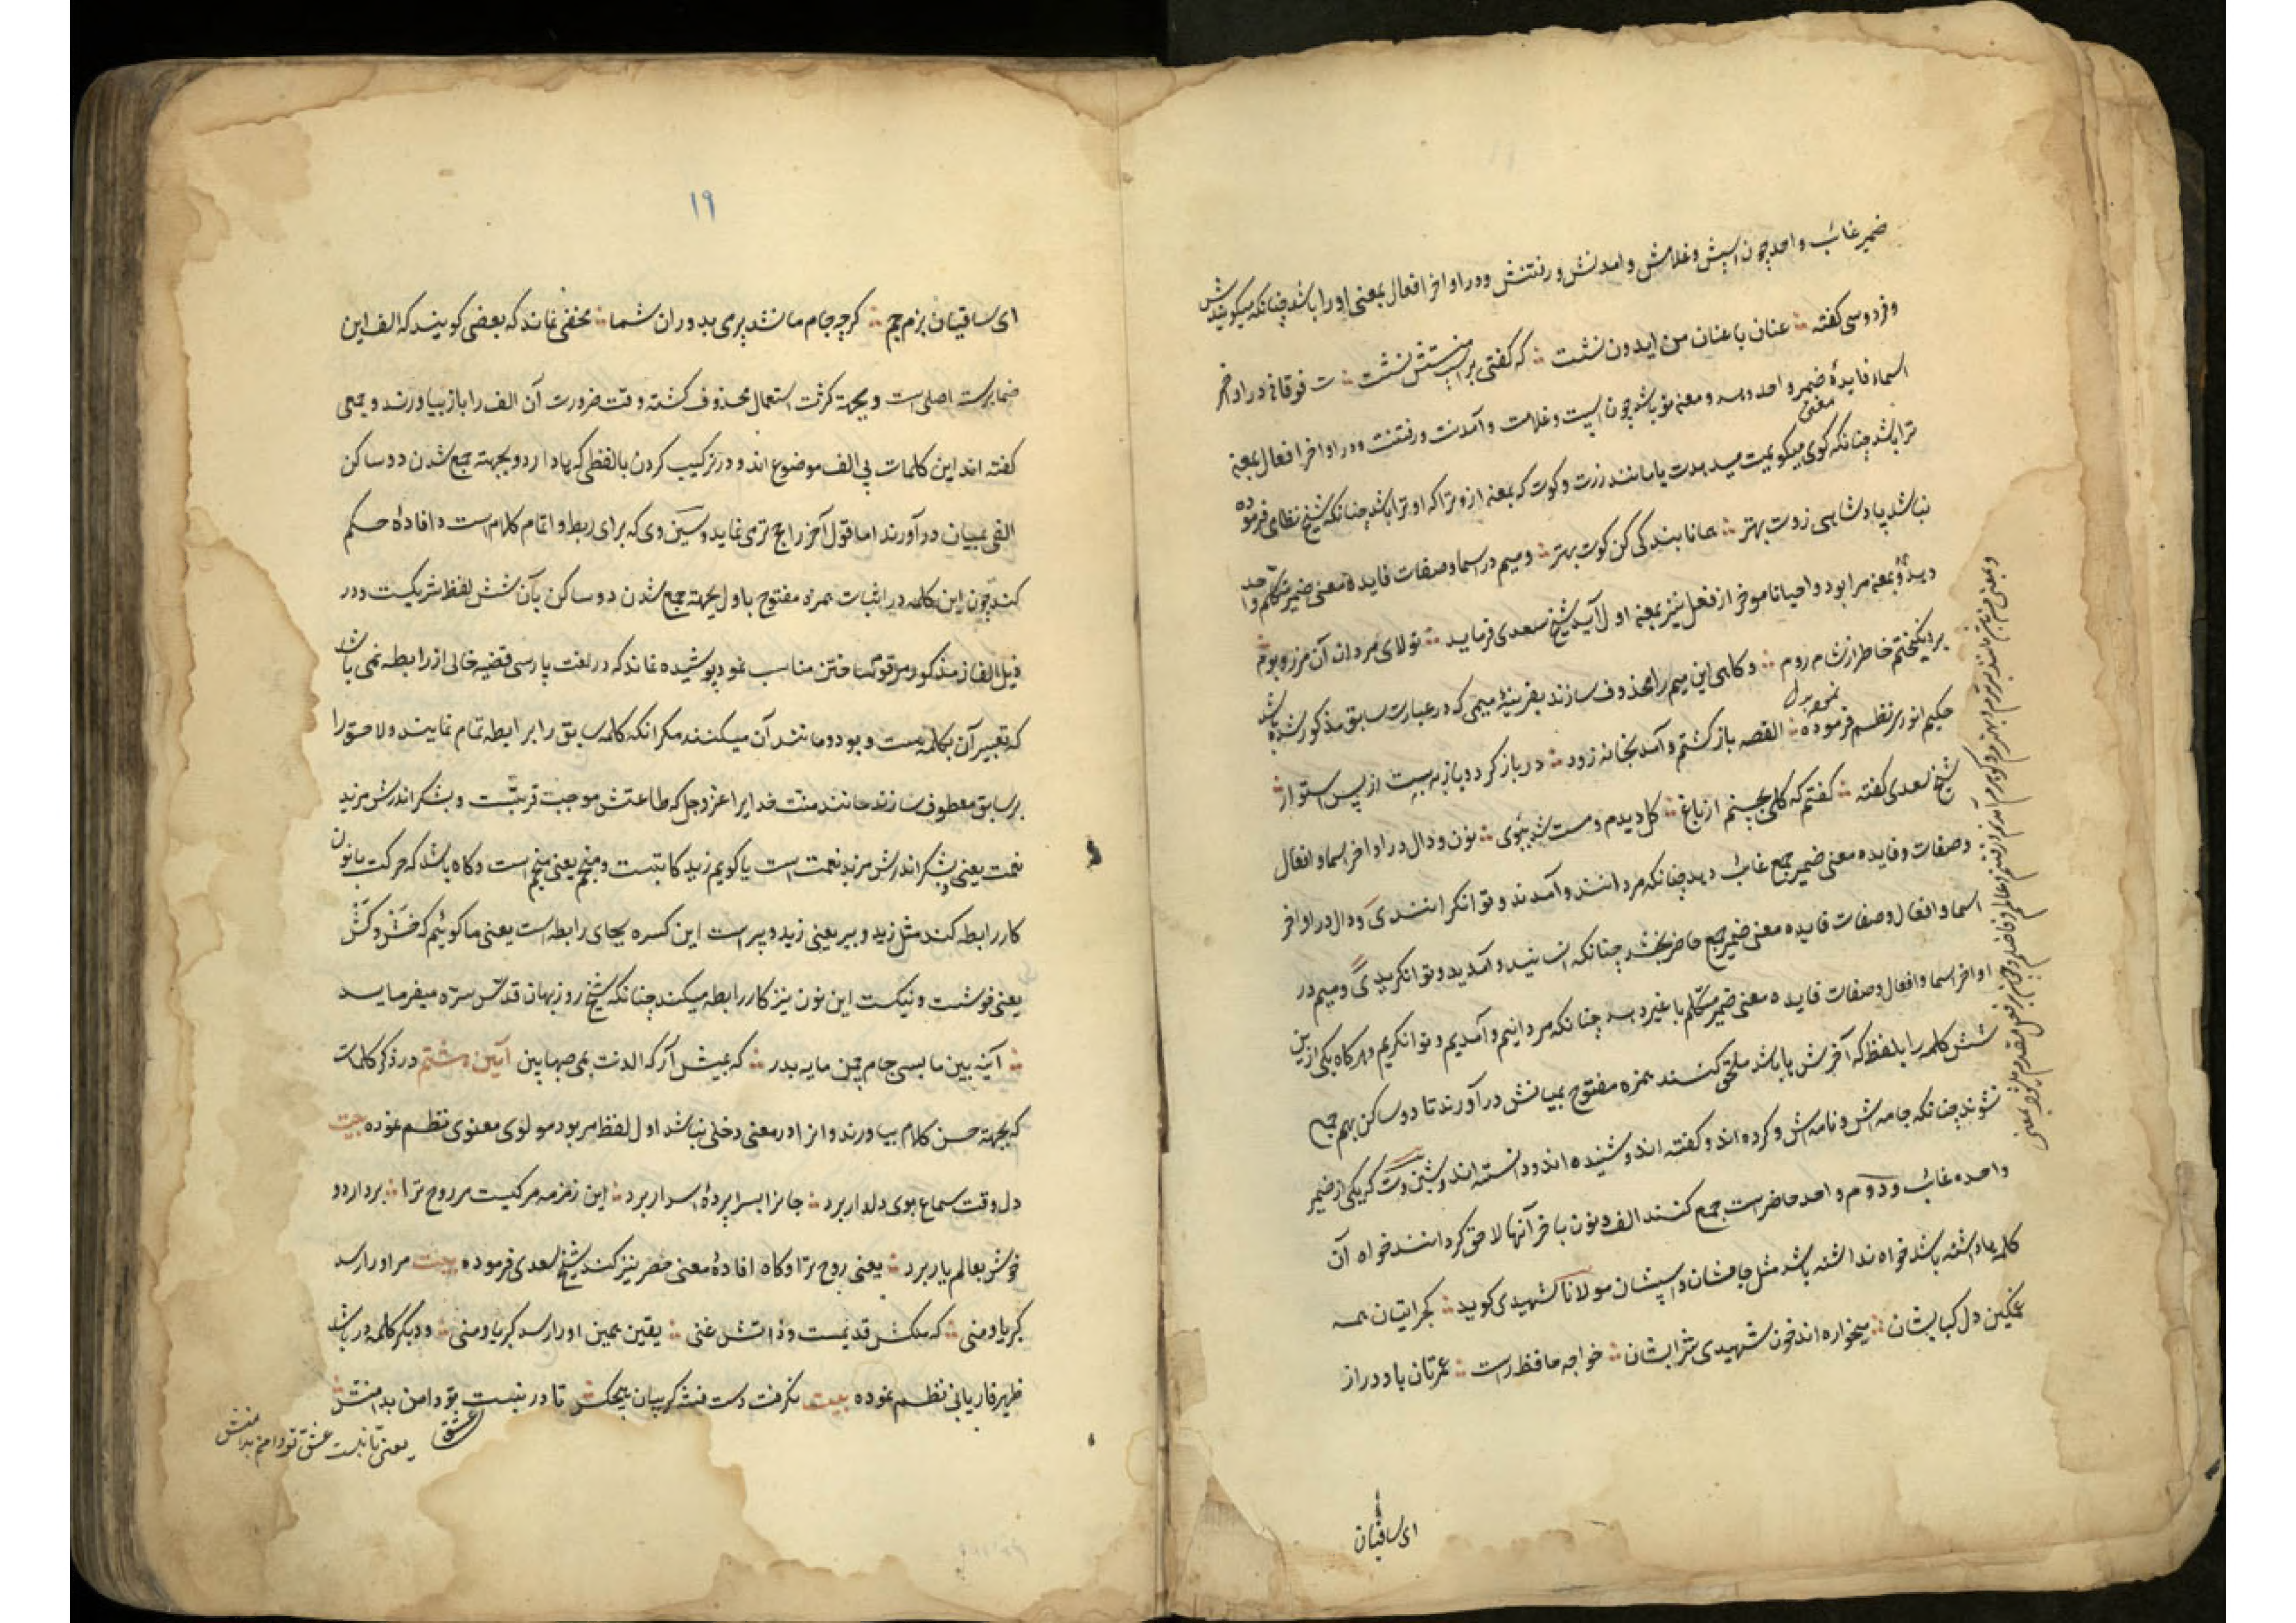 ضمیر غائب واحد چون اسپش و غلامش و امدنش و رفتنش و در اواخر افعال بمعنی او را باشد چنانکه میگویندش
و فردوسی گفته عنان با عنان من ایدون نشست که گفتی بر اسپ منستش نشست ت فوقانی در اواخر
اسما فایدهٔ ضمیر واحد دهد و معنی تو باشد چون اسپت و غلامت و آمدنت و رفتنت و در اواخر افعال بمعنه
ترا باشد چنانکه گوی میگویمت میدهمت یا مانند زرت و کوت که بمعنه از و ترا که او ترا باشد چنانکه شیخ نظامی فرموده
نباشد پادشاهی زوت بهتر همانا بندگی کن کوت بهتر و میم در اسما و صفات فایده معنی ضمیر متکلم واحد
دهد و بمعنه مرا بود و احیانا موخر از فعل نیز بمعنه اول آید شیخ سعدی فرماید تولای مردان آن مرز و بوم
بردیکختم خاطر از شام روم و کاهی این میم را محذوف سازند بقرینهٔ میمی که در عبارت سابق مذکور شده باشد
حکیم انوری نظم فرموده القصه بازکشتم و آمد بخانه زود در باز کرد و باز به بست از پس استوار
شیخ سعدی گفته گفتم که گلی بچینم از باغ گل دیدم و مست شد ببوی نون و دال در اواخر اسما و افعال
و صفات و فایده معنی ضمیر جمع غائب دهد چنانکه مردانند و آمدند و توانکرانند ی و دال در اواخر
اسما و افعال و صفات فایده معنی ضمیر جمع حاضر بخشد چنانکه انسانید و آمدید و توانکرید ی و میم در
اواخر اسما و افعال و صفات فایده معنی ضمیر متکلم با غیر دهد چنانکه مردانیم و آمدیم و توانکریم و هرکاه یکی از این
شش کلمه را بلفظ که آخرش ها باشد ملحق کنند همزه مفتوح بمیانش درآورند تا دو ساکن بهم جمع
نشوند چنانکه جامه اش و نامه اش و کرده اند و گفته اند و شنیده اند و دانسته اند و شین و ت که یکی از ضمیر
واحده غائب و دوم واحد حاضر است جمع کنند الف و نون باخر آنها لاحق کردانند خواه آن
کلمه ها داشته باشد خواه نداشته باشد مثل جامشان و اسپشان مولانا شهیدی گوید گجراتیان همه
غمگین دل کبابشان میخواره اند خون شهیدی شرابشان خواجه حافظ راست عمرتان باد دراز
ای ساقیان
۱۹
ای ساقیان بزم جم گرچه جام ما نشد پر می بدوران شما مخفی نماند که بعضی گویند که الف این
ضمایر سه اصلی است و بجهة کثرت استعمال محذوف کشته وقت ضرورت آن الف را باز بیاورند و جمعی
گفته اند این کلمات بی الف موضوع اند و در ترکیب کردن بالفظی که ها دارد و بجهته جمع شدن دو ساکن
الفی بمیان درآورند اما قول آخر راجح تر می نماید و سین وی که برای ربط و اتمام کلام است و افادهٔ حکم
کند چون این کلمه در اثبات همزه مفتوح باول بجهته جمع شدن دو ساکن بآن شش لفظ شریکست و در
ذیل الفاظ مذکور مرقوم ساختن مناسب نمود پوشیده نماند که در لغت پارسی قضیه خالی از رابطه نمی باشد
که تعبیر آن بکلمه هست و بود و مانند آن میکنند مگر انکه کلمه سابق را برابطه تمام نمایند و لاحق را
بر سابق معطوف سازند مانند منت خدایرا عز و جل که طاعتش موجب قربتست و بشکر اندرش مزید
نعمت یعنی و بشکر اندرش مزید نعمت است یا گویم زید کاتبست و منجم یعنی منجم است و کاه باشد که حرکت یا نون
کار رابطه کند مثل زید و بیر یعنی زید و پیر است این کسره بجای رابطه است یعنی ما گوئیم که خش و کش
یعنی خوشست و نیکست این نون نیز کار رابطه میکند چنانکه شیخ روزبهان قدس سره میفرماید
آینه بین ما بسی جام چمن مایه بدر که بمیش آر که الدنت بمی صهباین آیین هشتم در ذکر کلمات
که بجهته حسن کلام بیاورند و انرا در معنی دخلی نباشد اول لفظ مر بود مولوی معنوی نظم نموده بیت
دل وقت سماع بوی دلدار برد جانرا بسراپردهٔ اسرار برد این زمزمه مرکبیست مر روح ترا بردارد و
خوش بعالم یار برد یعنی روح ترا و کاه افادهٔ معنی حصر نیز کند شیخ سعدی فرموده بیت مر او را رسد
کبریا و منی که ملکش قدیمست و ذاتش غنی یقین همین او را رسد کبریا و منی و دیگر کلمه در باشد
ظهیر فاریابی نظم نموده بیت نگرفت دست فتنه کریبان هیچکس تا در نبست تو دامن بدامنش
عشق
یعنی تا نبست عشق تو دامن بدامنش